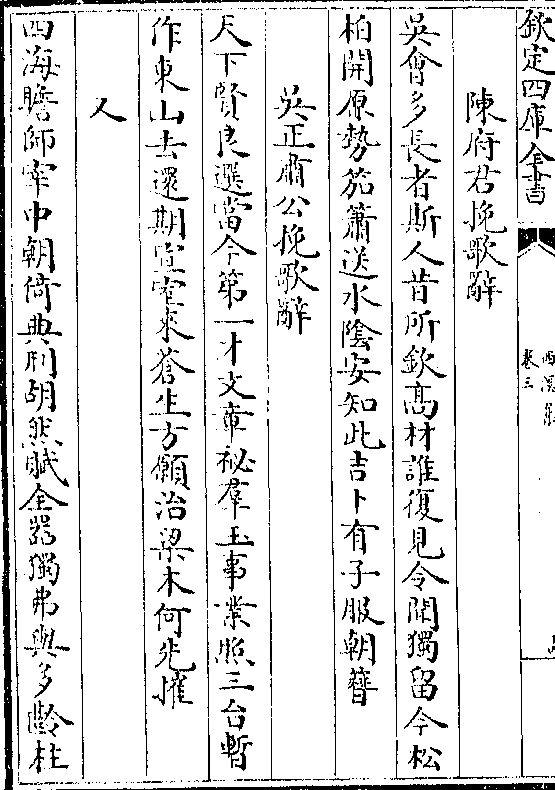 欽定四庫全書
西溪集
卷三
陳府君挽歌辭
吳會多長者斯人昔所欽髙材誰復見令聞獨留今松
柏開原勢笳簫送水陰安知此吉卜有子服朝簪
吳正肅公挽歌辭
天下賢良選當今第一才文章祕羣玉事業照三台暫
作東山去還期宣室來蒼生方願治梁木何先摧
又
四海瞻師宰中朝倚典刑胡然賦全器獨弗與多齡柱